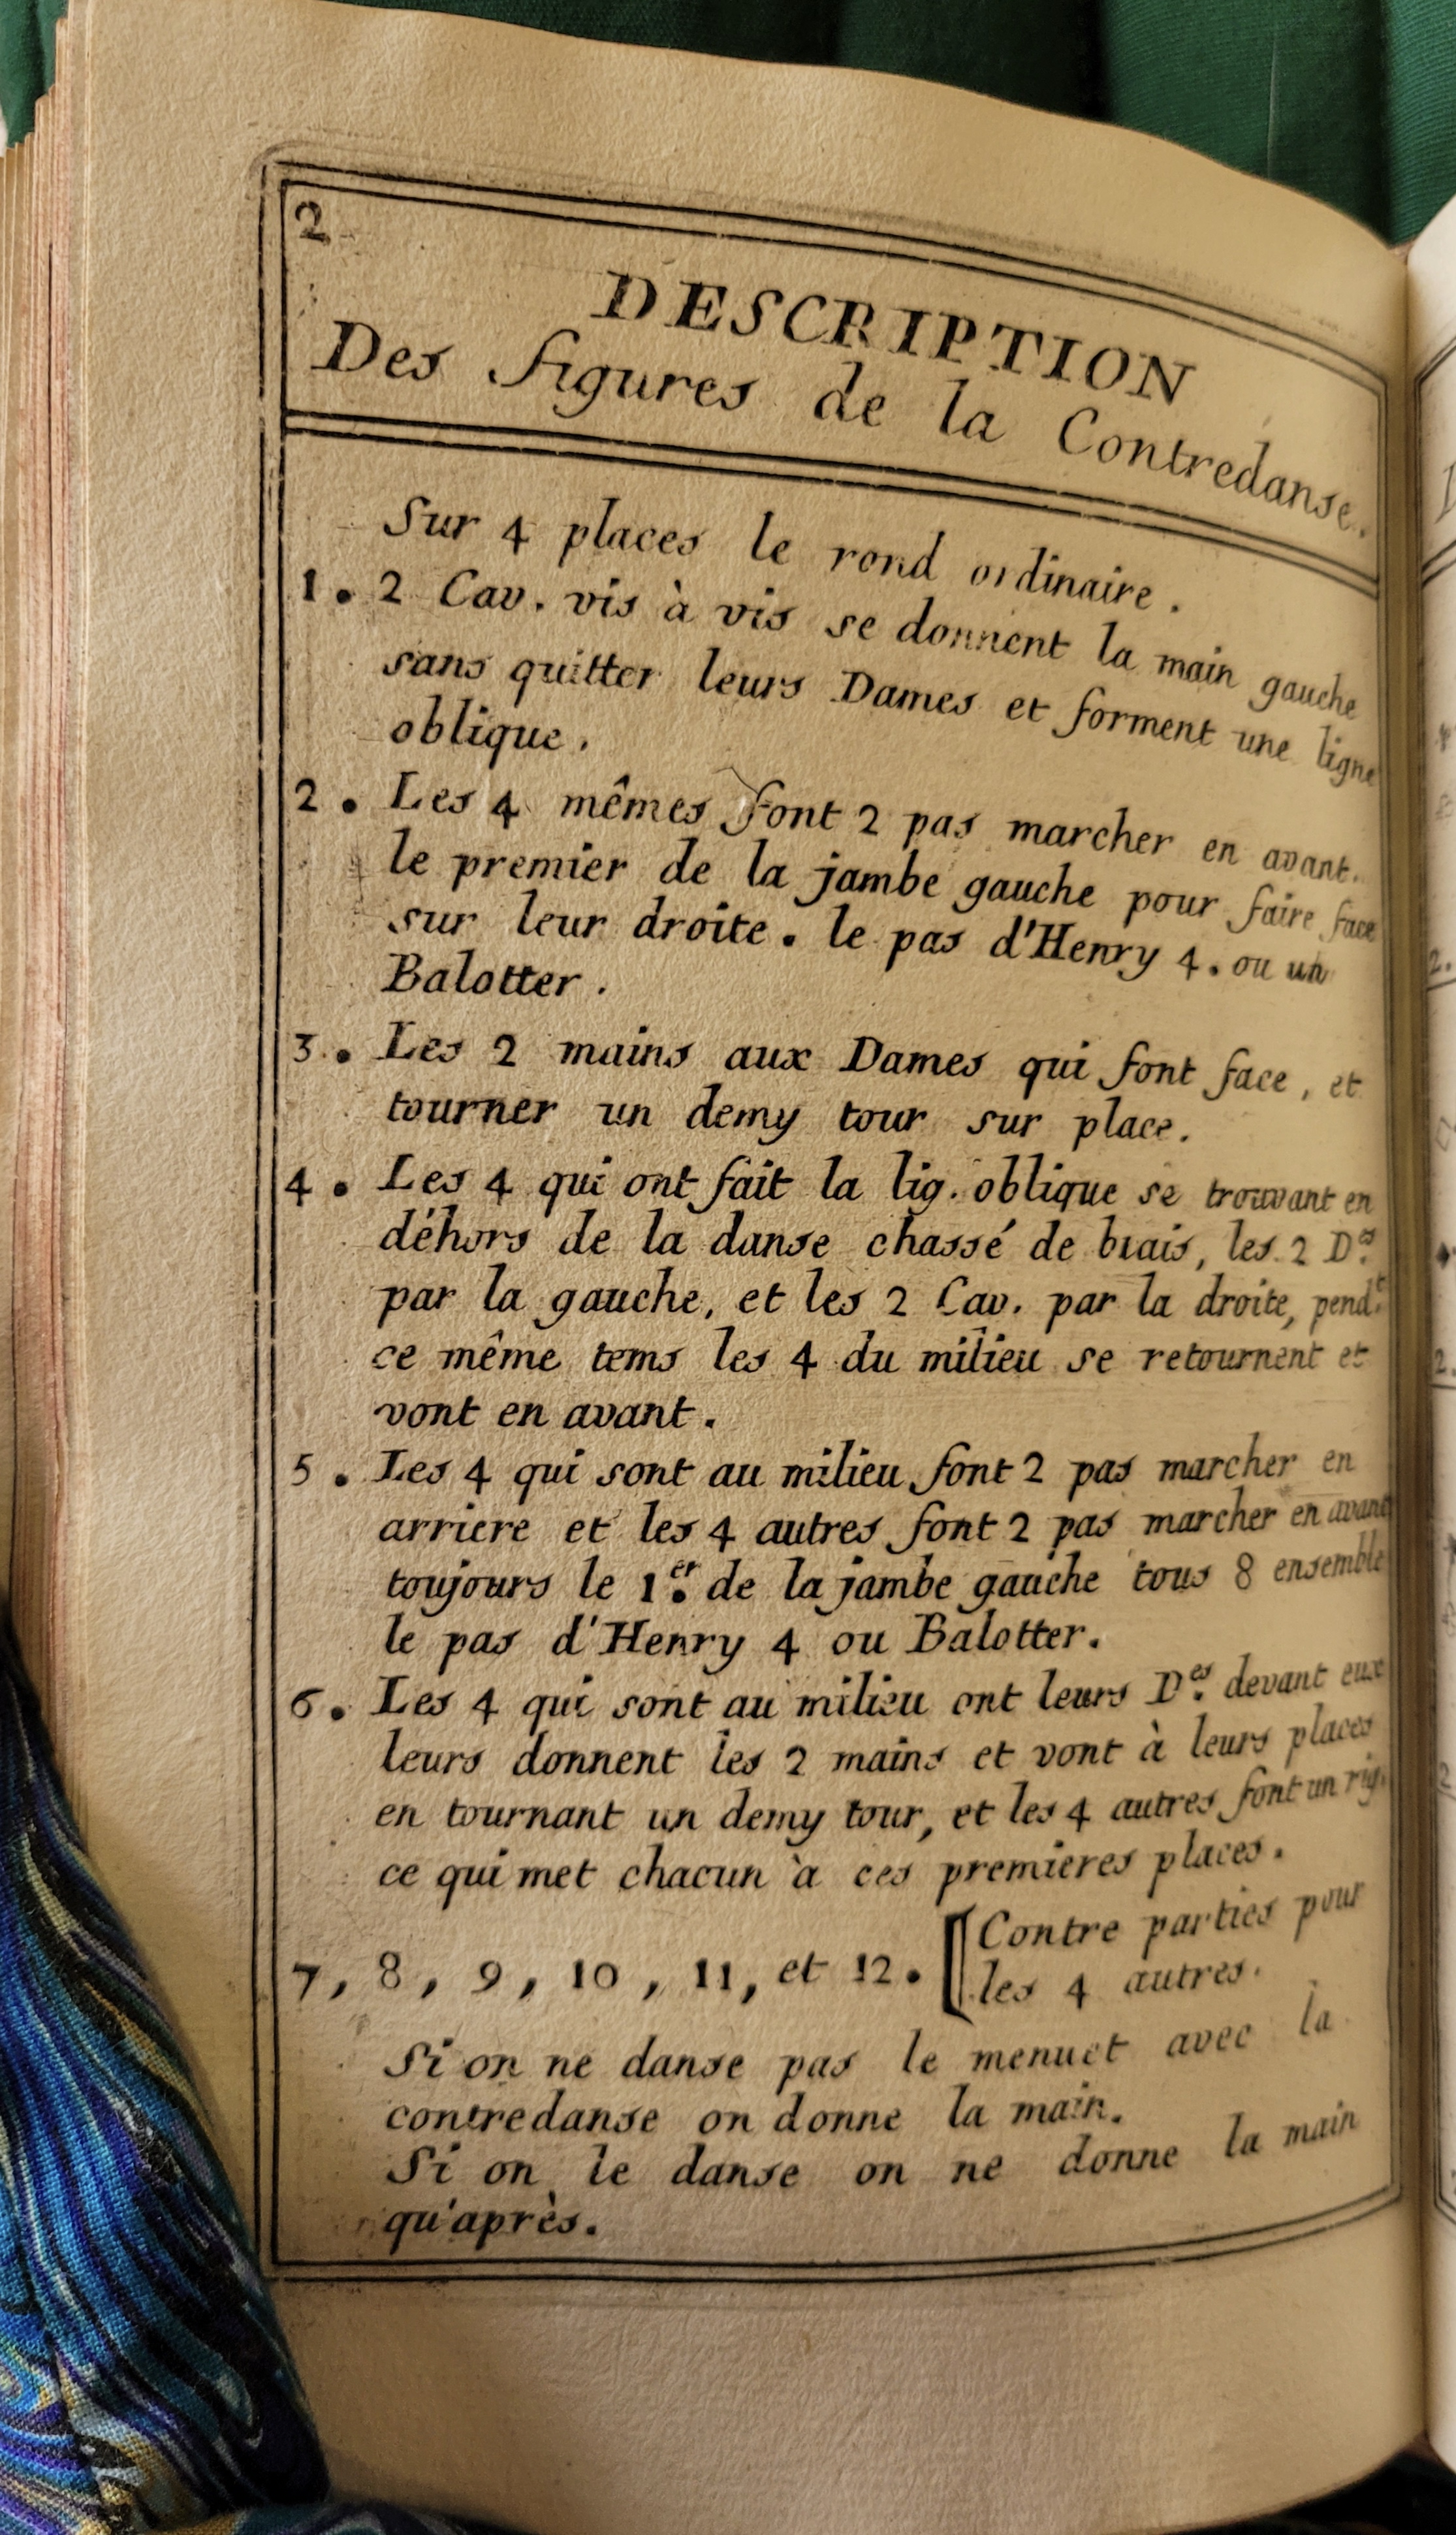 2
DESCRIPTION
Des figures de la Contredanse.
Sur 4 places le rond ordinaire.
1. 2 Cav. vis à vis se donnent la main gauche
sans quitter leurs Dames et forment une ligne
oblique.
2. Les 4 mêmes font 2 pas marcher en avant.
le premier de la jambe gauche pour faire face
sur leur droite. le pas d'Henry 4. ou un
Balotter.
3. Les 2 mains aux Dames qui font face, et
tourner un demy tour sur place.
4. Les 4 qui ont fait la lig. oblique se trouvant en
déhors de la danse chassé de biais, les 2 D.es
par la gauche, et les 2 Cav. par la droite, pend.t
ce même tems les 4 du milieu se retournent et
vont en avant.
5. Les 4 qui sont au milieu font 2 pas marcher en
arriere et les 4 autres font 2 pas marcher en avant
toujours le 1.er de la jambe gauche tous 8 ensemble
le pas d'Henry 4 ou Balotter.
6. Les 4 qui sont au milieu ont leurs D.es devant eux
leurs donnent les 2 mains et vont à leurs places
en tournant un demy tour, et les 4 autres font un rig.
ce qui met chacun à ces premieres places.
7, 8, 9, 10, 11, et 12. [Contre parties pour
les 4 autres.
Si on ne danse pas le menuet avec la
contredanse on donne la main.
Si on le danse on ne donne la main
qu'après.